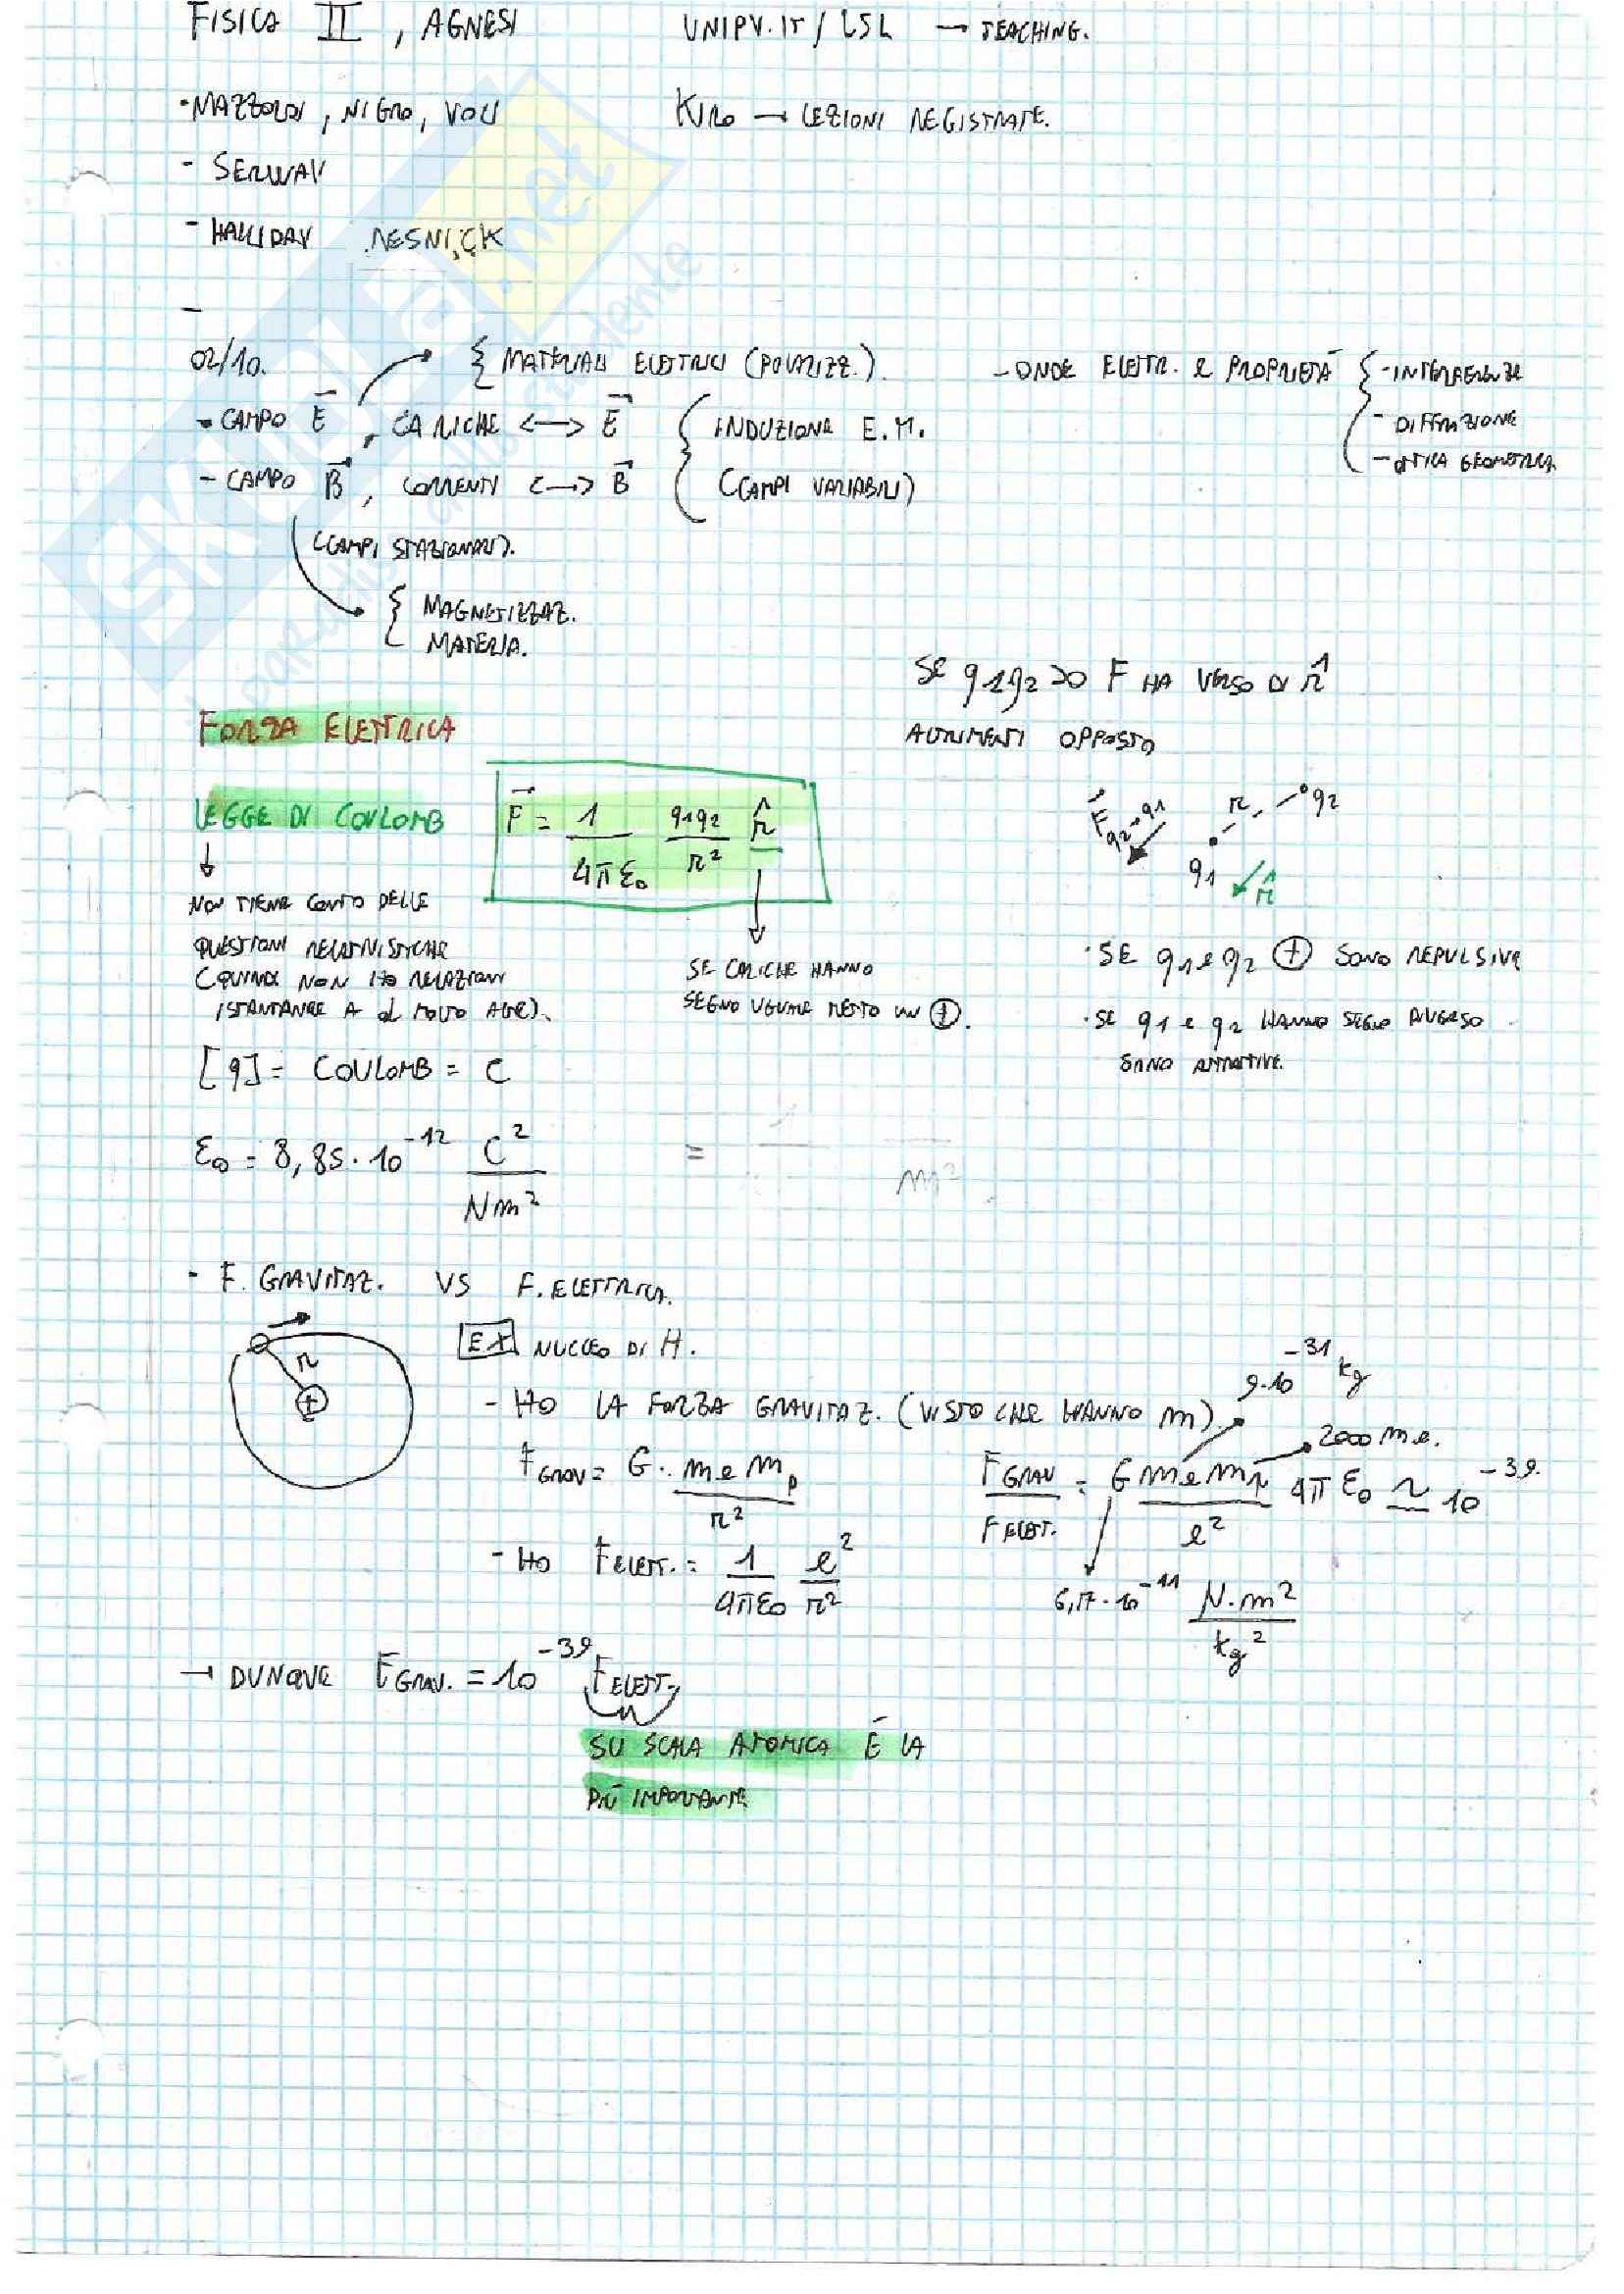 FISICA II, AGNESI
UNIPV.IT / LSL → TEACHING.
- MAZZOLDI, NIGRO, VOCI
KIRO → LEZIONI REGISTRATE.
- SERWAY
- HALLIDAY RESNICK
-
02/10.
{ MATERIALI ELETTRICI (POLARIZZ.).
- CAMPO E⃗, CARICHE <-> E⃗
- CAMPO B⃗, CORRENTI <-> B⃗
(CAMPI STAZIONARI).
{ MAGNETIZZAZ.
MATERIA.
{ INDUZIONE E.M.
(CAMPI VARIABILI)
- ONDE ELETTR. E PROPRIETÀ { - INTERFERENZE
- DIFFRAZIONE
- OTTICA GEOMETRICA
SE q1q2 > 0 F HA VERSO DI r̂
ALTRIMENTI OPPOSTO
FORZA ELETTRICA
LEGGE DI COULOMB
F⃗ = 1/4πε0 q1q2/r² r̂
↓
NON TIENE CONTO DELLE
QUESTIONI RELATIVISTICHE
(QUINDI NON HO RELAZIONI
ISTANTANEE A d MOLTO ALTE).
SE CARICHE HANNO
SEGNO UGUALE METTO UN ⊕.
F⃗ q2→q1
r
q2
q1
r̂
· SE q1 e q2 ⊕ SONO REPULSIVE
· SE q1 e q2 HANNO SEGNO DIVERSO
SONO ATTRATTIVE.
[q] = COULOMB = C
ε0 = 8,85 · 10⁻¹² C²/Nm² =
m²
- F. GRAVITAZ. VS F. ELETTRICA.
r
+
EX NUCLEO DI H.
- HO LA FORZA GRAVITAZ. (VISTO CHE HANNO m).
9·10⁻³¹ kg
2000 me.
F GRAV = G · me mp/r²
F GRAV/F ELETT. = G me mp/e² 4πε0 ≃ 10⁻³⁹.
- HO F ELETT. = 1/4πε0 e²/r²
6,17 · 10⁻¹¹ N·m²/kg²
→ DUNQUE F GRAV. = 10⁻³⁹ F ELETT.
SU SCALA ATOMICA È LA
PIÙ IMPORTANTE
SKUOLA.net